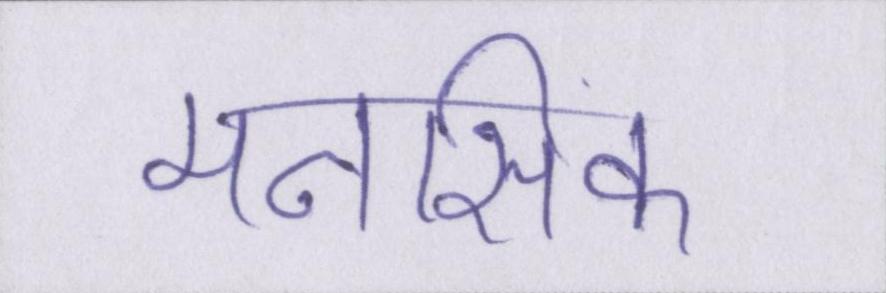 मनसिंक